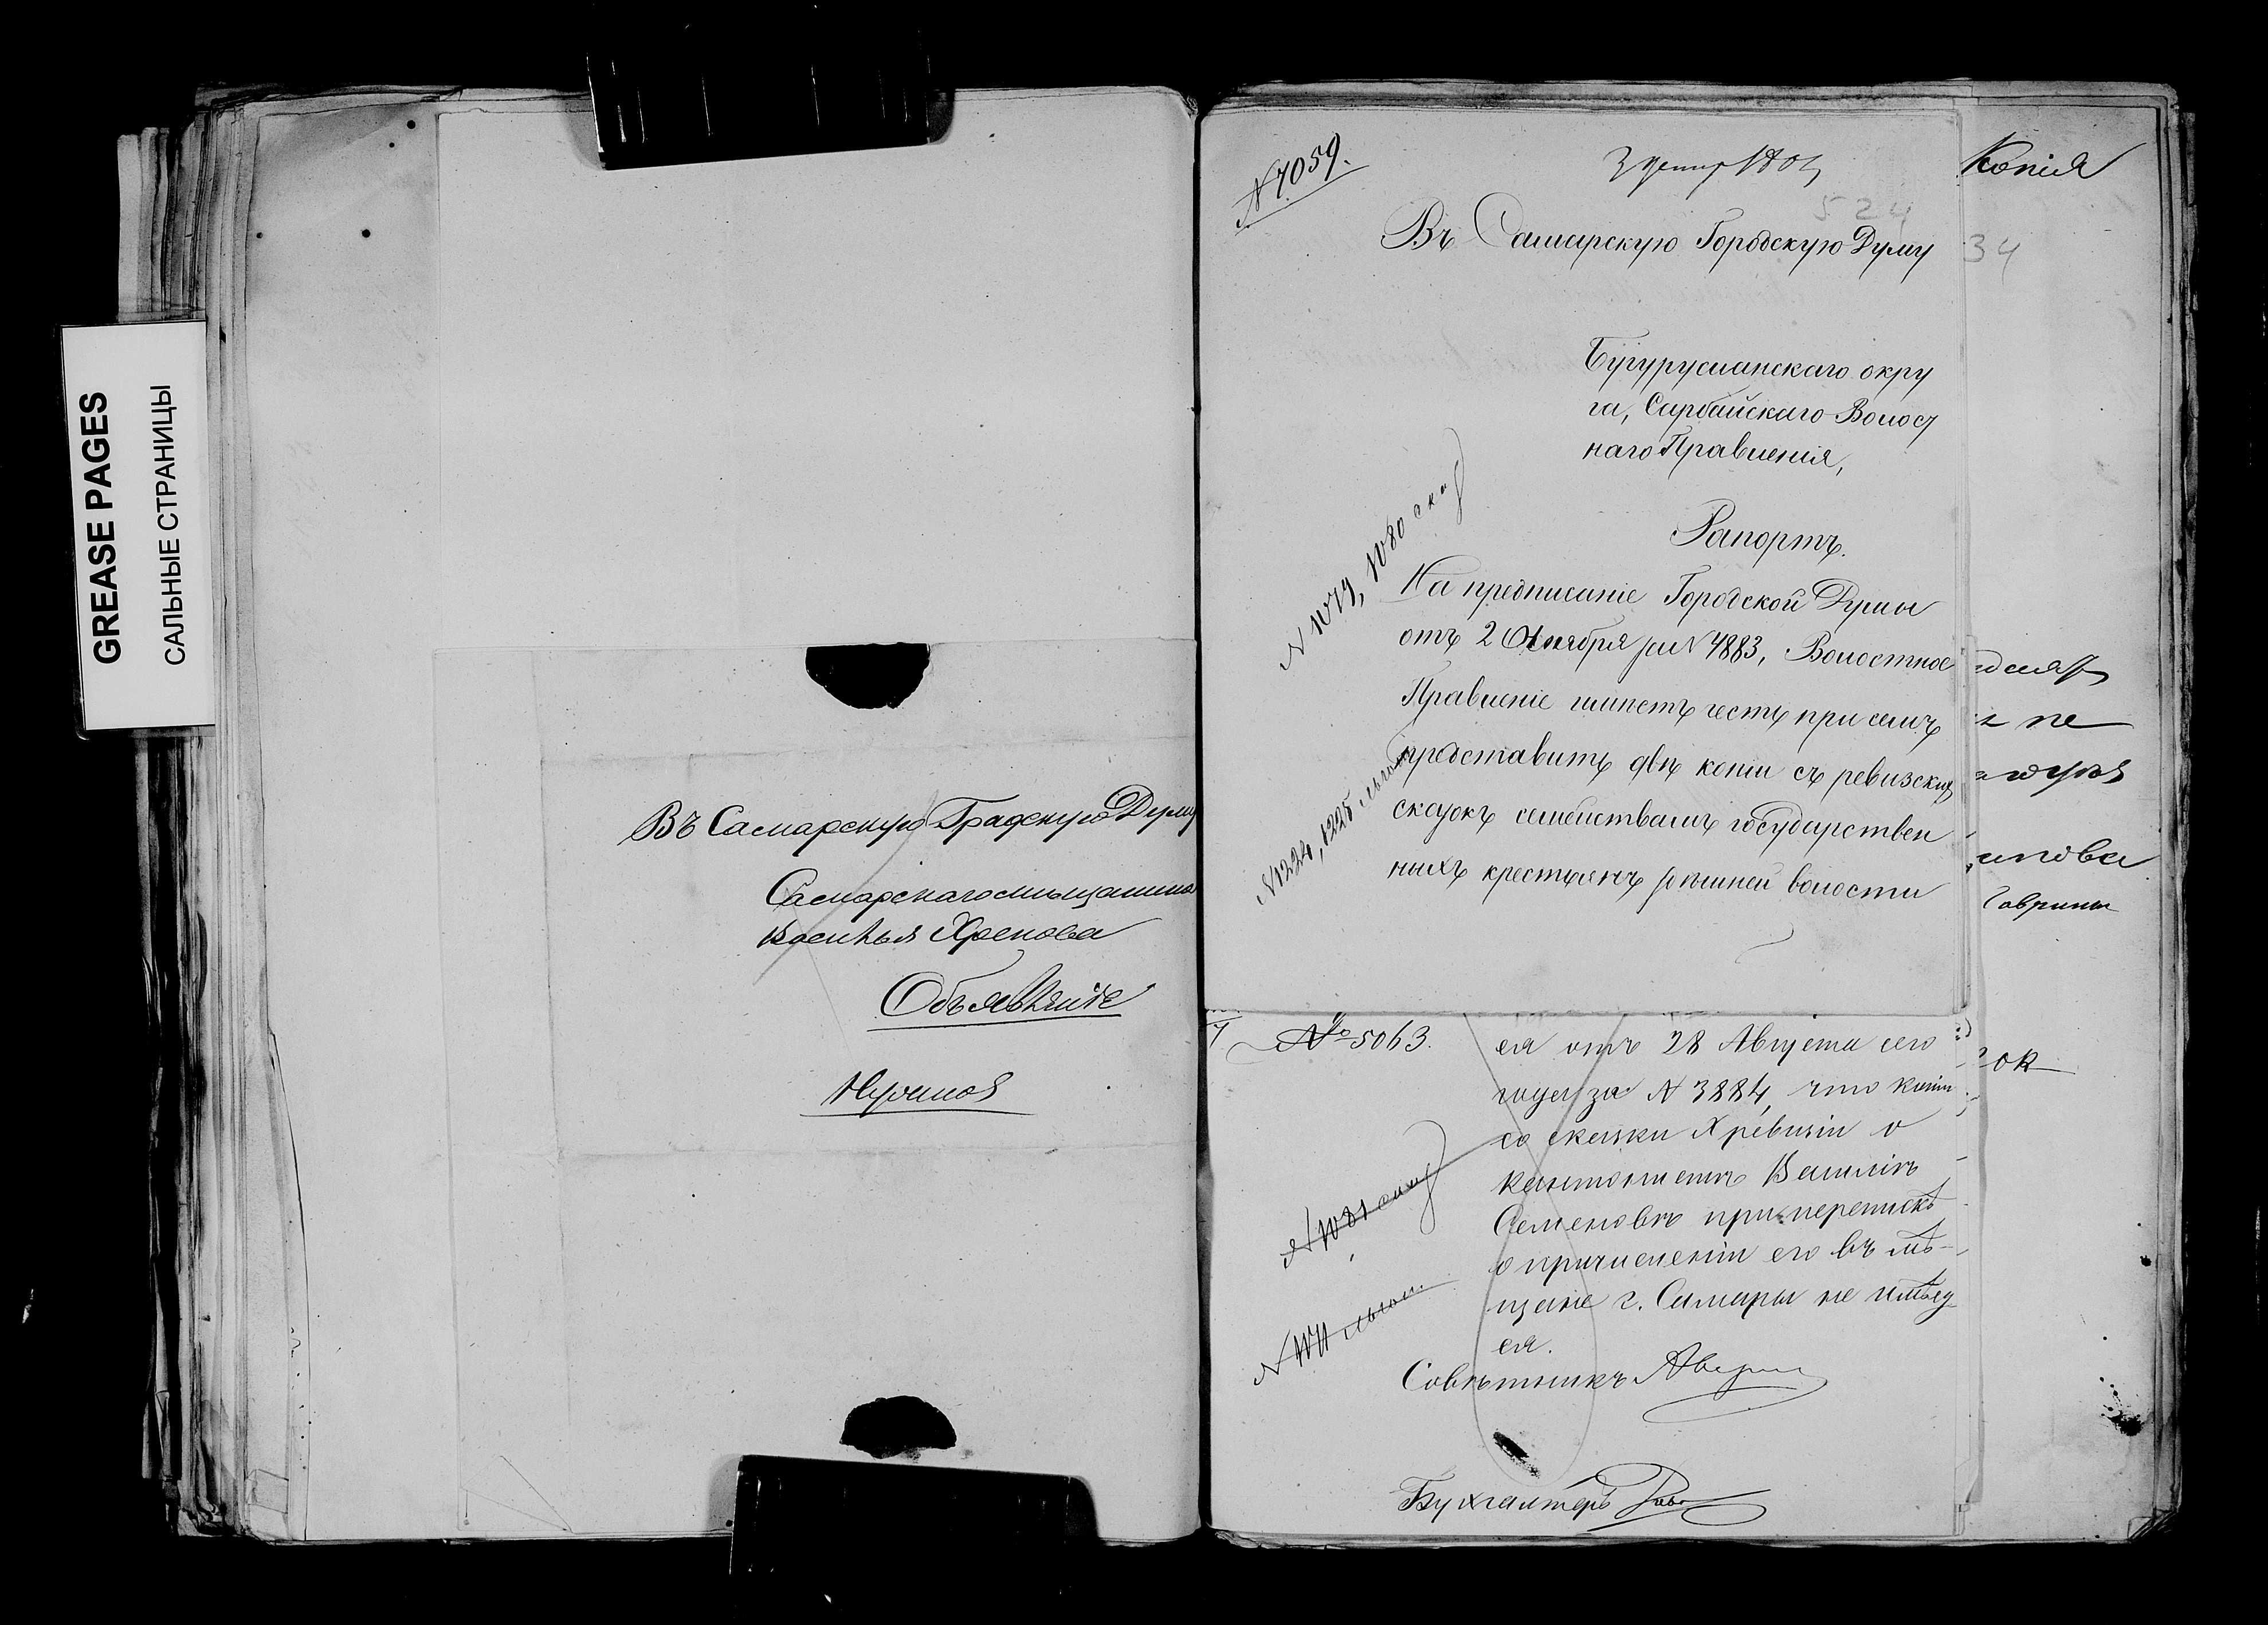 GREASE PAGES
САЛЬНЫЕ СТРАНИЦЫ
Въ Самарскую Градскую Думу
Самарскаго мещанина
Василья Хренова
Объявленiе
N 7059.
524
Въ Самарскую Городскую Думу
Бугурусланскаго окру
га, Сарбайскаго Волост
наго Правленiя,
Рапортъ.
На предписанiе Городской Думы
отъ 2 Октября за N 4883, Волостное
Правленiе имѣетъ честь при семъ
представить двѣ копiи съ ревизскихъ
сказокъ семействамъ государствен
ныхъ крестьянъ здѣшней волости
N 1079, 1080 сказ
N 1224, 1225
№ 5063.
ея отъ 28 Августа сего
года за N 3884, что копiи
со сказки X ревизiи о
кантонистѣ Василiѣ
Семеновѣ при перепискѣ
о причисленiи его въ мѣ-
щане г. Самары не имѣет
ся.
N 1081 сказ
Совѣтникъ
Бухгалтеръ
Копiя
34
не
ок